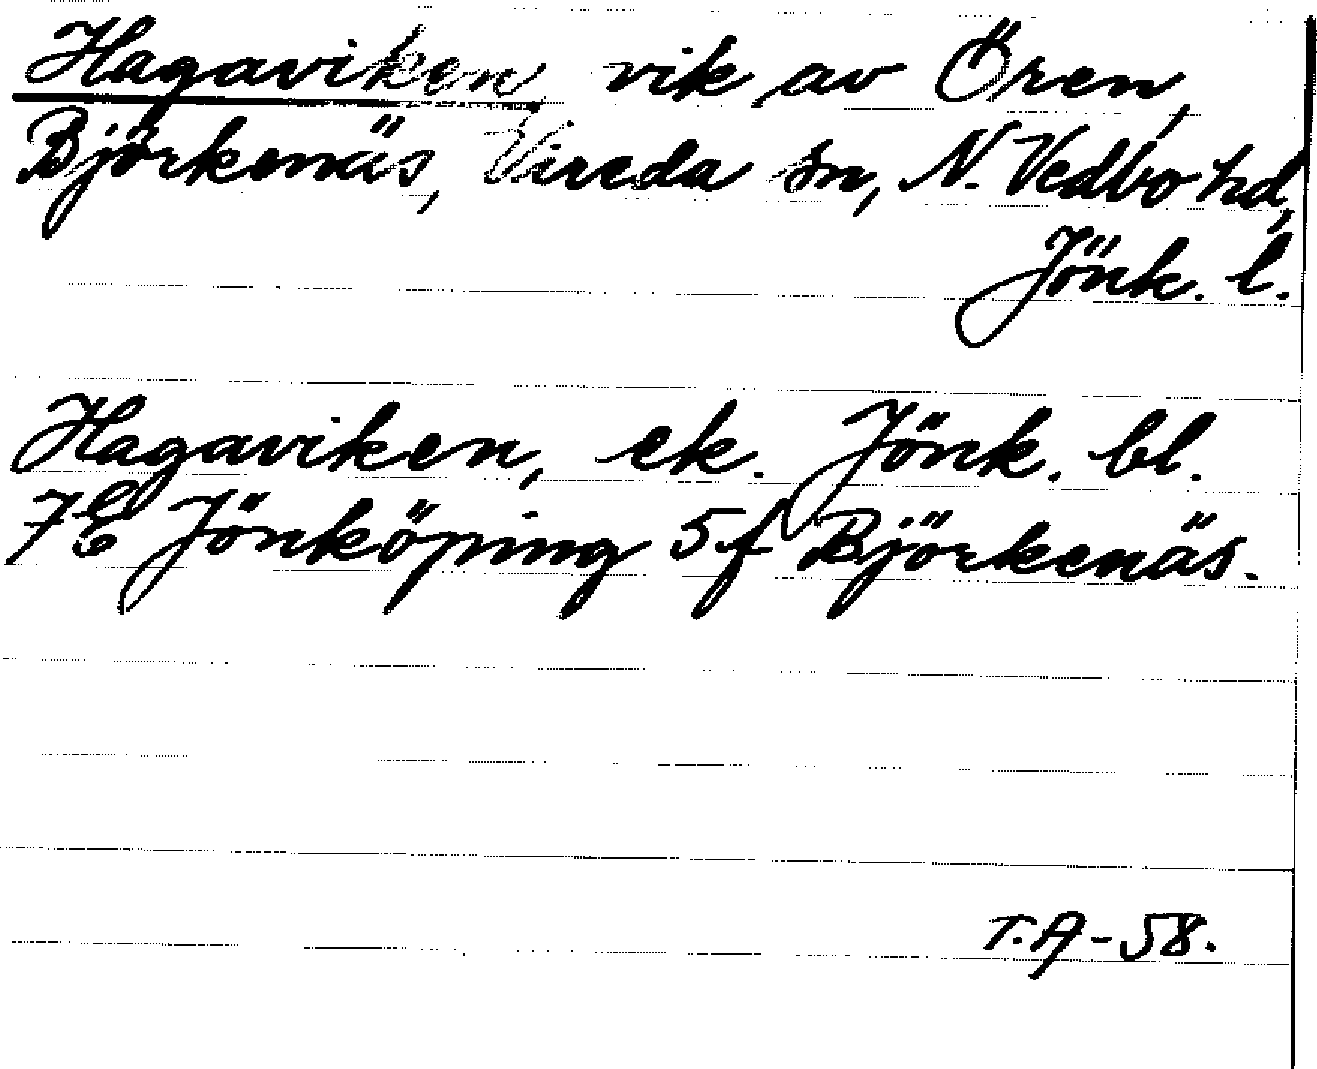 Hagaviken vik av Ören,
Björkenäs, Vireda sn, N. Vedbo hd,
Jönk. l.
Hagaviken, ek. Jönk. bl.
7E Jönköping 5f Björkenäs.
T.A-58.